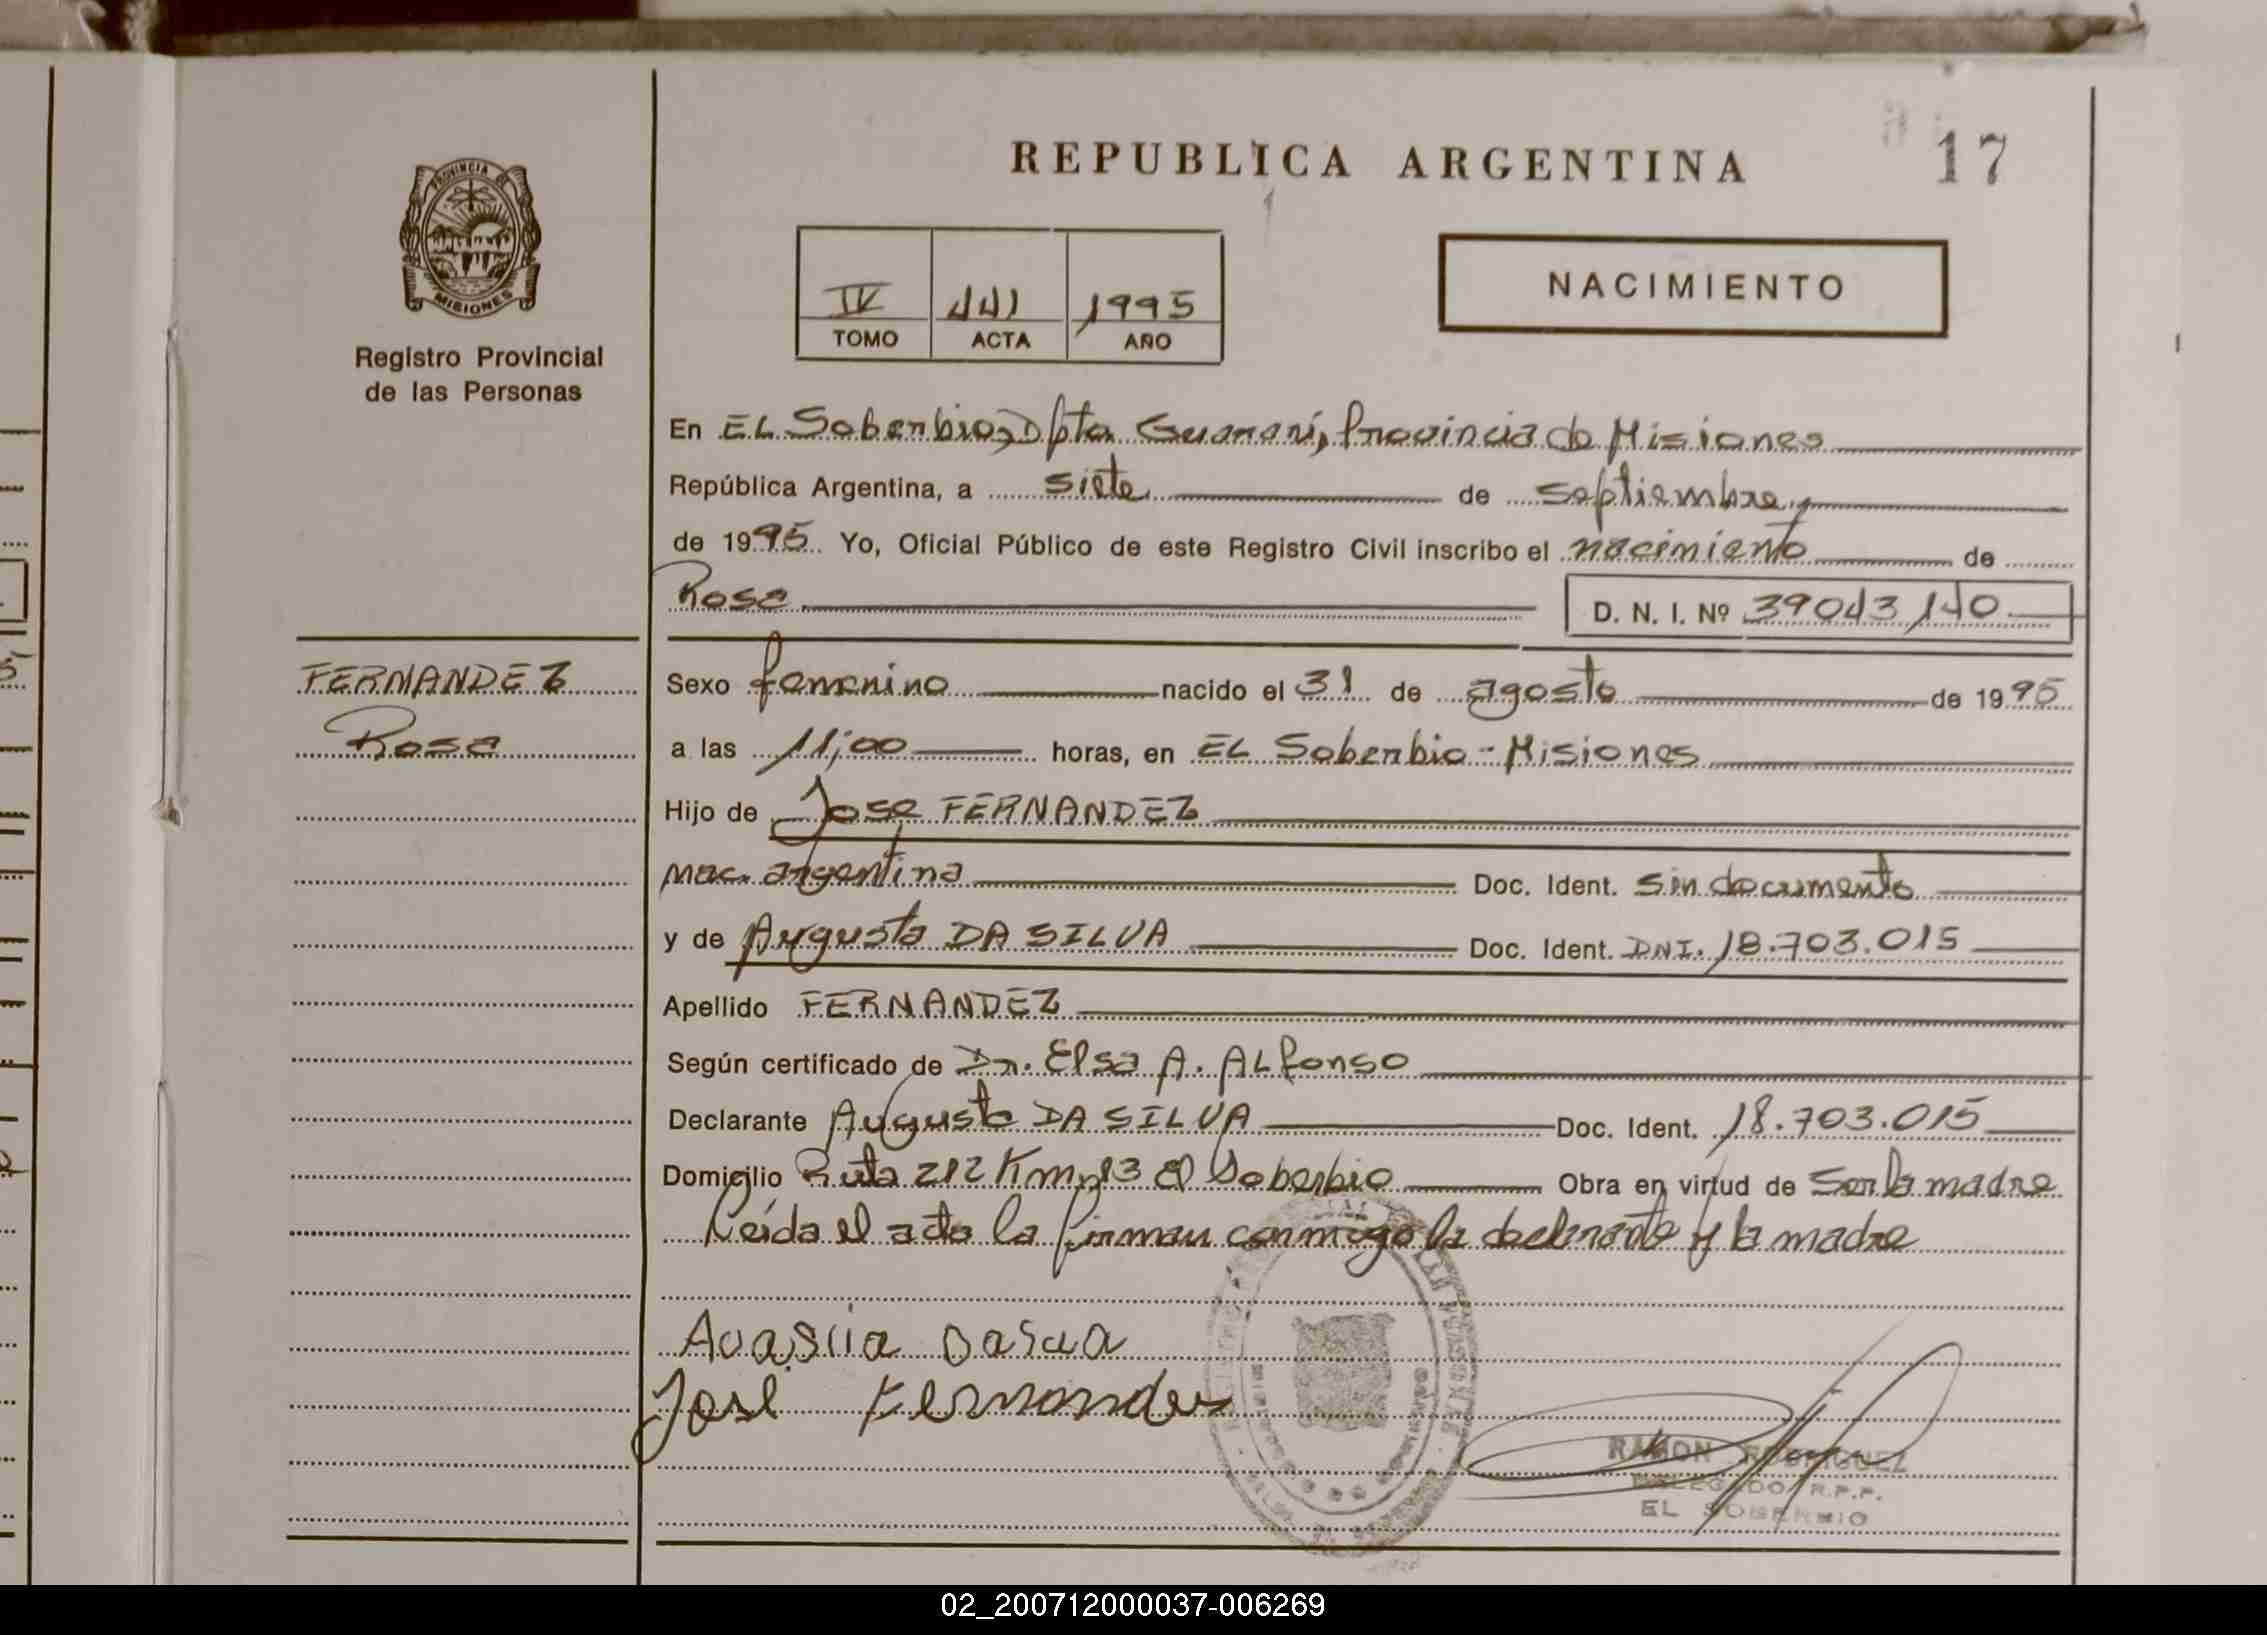 REPUBLICA ARGENTINA
17
PROVINCIA DE
MISIONES
Registro Provincial
de las Personas
IV 441 1995
TOMO ACTA AÑO
NACIMIENTO
En EL Soberbio, Dpto Guaraní, Provincia de Misiones
República Argentina, a siete de septiembre,
de 1995 Yo, Oficial Público de este Registro Civil inscribo el nacimiento de
Rosa D. N. I. Nº 39043140
FERNANDEZ
Rosa
Sexo femenino nacido el 31 de agosto de 1995
a las 11;00 horas, en EL Soberbio - Misiones
Hijo de Jose FERNANDEZ
nac. argentina Doc. Ident. Sin documento
y de Augusta DA SILVA Doc. Ident. DNI. 18.703.015
Apellido FERNANDEZ
Según certificado de Dr. Elsa A. ALfonso
Declarante Augusta DA SILVA Doc. Ident. 18.703.015
Domicilio Ruta 212 Km, 13 El Soberbio Obra en virtud de Ser la madre
Leída el acta la firman conmigo la declarante y la madre
José Fernandez
RAMON RODRIGUEZ
DELEGADO R.P.P.
EL SOBERBIO
02_200712000037-006269